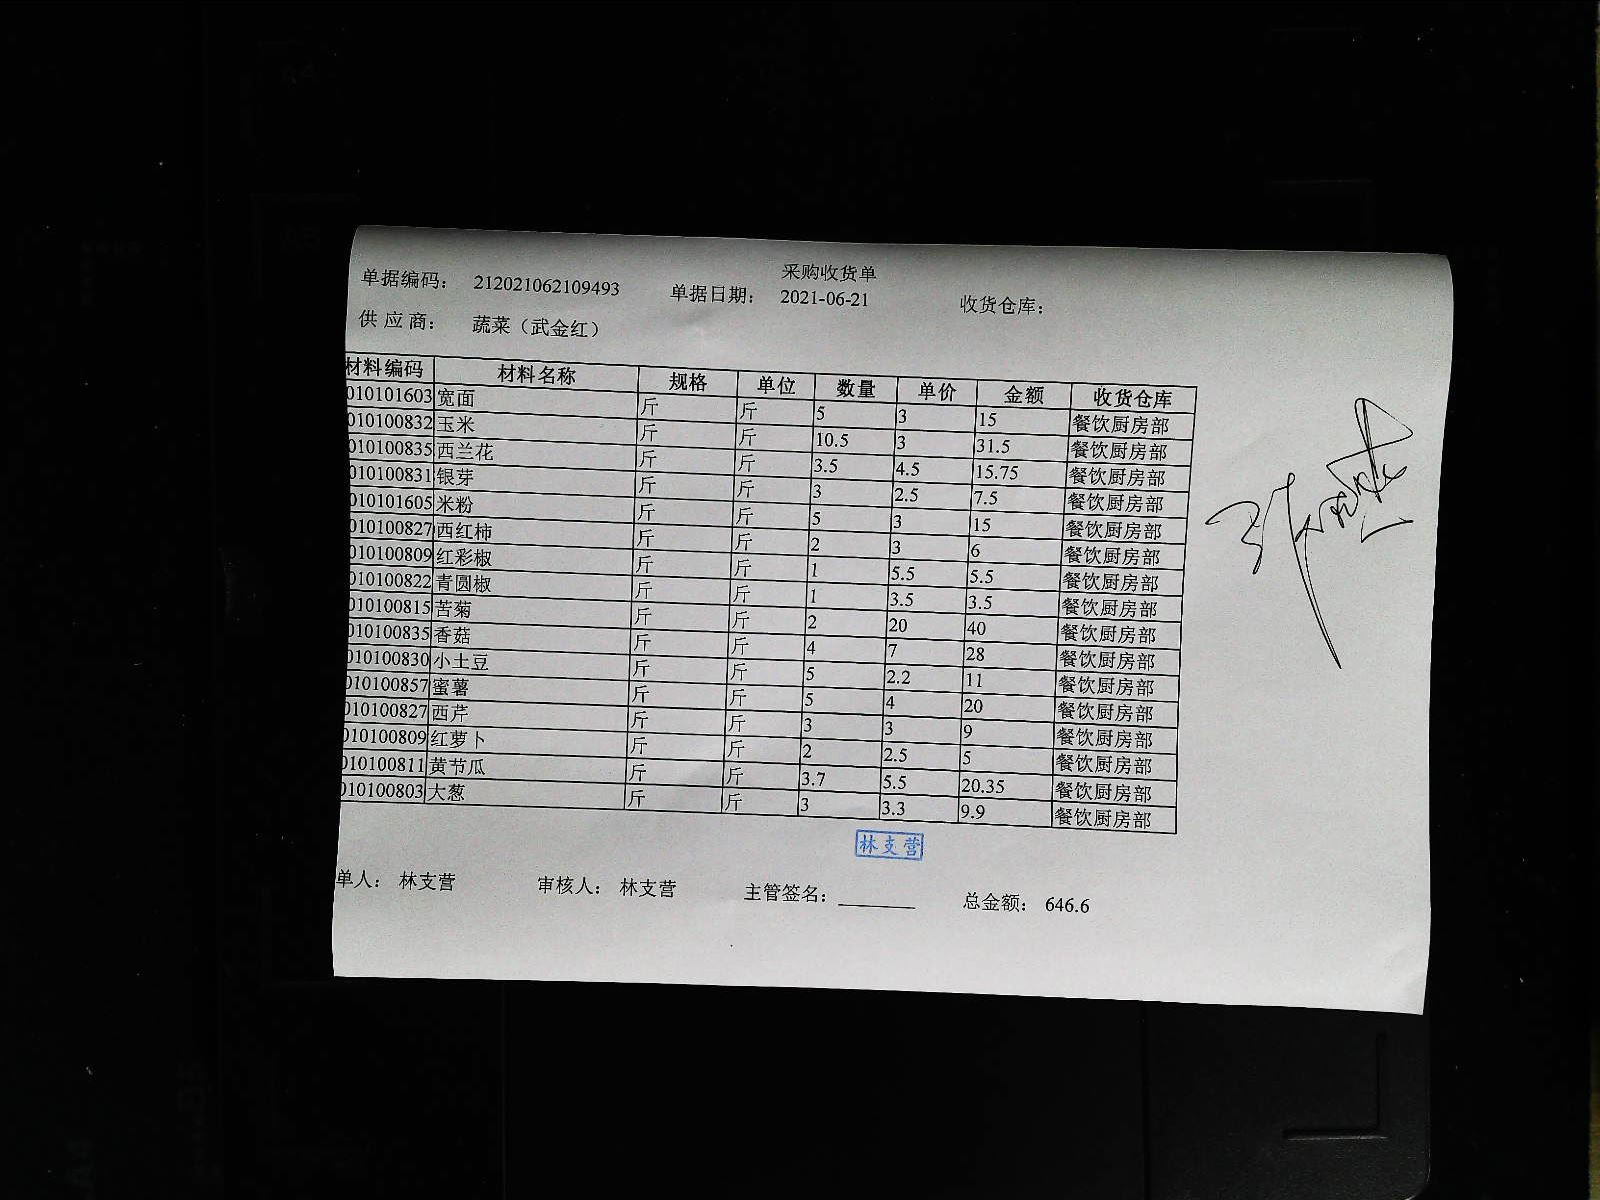 采购收货单
单据编码： 212021062109493 单据日期： 2021-06-21 收货仓库：
供 应 商： 蔬菜（武金红）
材料编码 材料名称 规格 单位 数量 单价 金额 收货仓库
010101603 宽面 斤 斤 5 3 15 餐饮厨房部
010100832 玉米 斤 斤 10.5 3 31.5 餐饮厨房部
010100835 西兰花 斤 斤 3.5 4.5 15.75 餐饮厨房部
010100831 银芽 斤 斤 3 2.5 7.5 餐饮厨房部
010101605 米粉 斤 斤 5 3 15 餐饮厨房部
010100827 西红柿 斤 斤 2 3 6 餐饮厨房部
010100809 红彩椒 斤 斤 1 5.5 5.5 餐饮厨房部
010100822 青圆椒 斤 斤 1 3.5 3.5 餐饮厨房部
010100815 苦菊 斤 斤 2 20 40 餐饮厨房部
010100835 香菇 斤 斤 4 7 28 餐饮厨房部
010100830 小土豆 斤 斤 5 2.2 11 餐饮厨房部
010100857 蜜薯 斤 斤 5 4 20 餐饮厨房部
010100827 西芹 斤 斤 3 3 9 餐饮厨房部
010100809 红萝卜 斤 斤 2 2.5 5 餐饮厨房部
010100811 黄节瓜 斤 斤 3.7 5.5 20.35 餐饮厨房部
010100803 大葱 斤 斤 3 3.3 9.9 餐饮厨房部
林支营
单人： 林支营 审核人： 林支营 主管签名： 总金额： 646.6